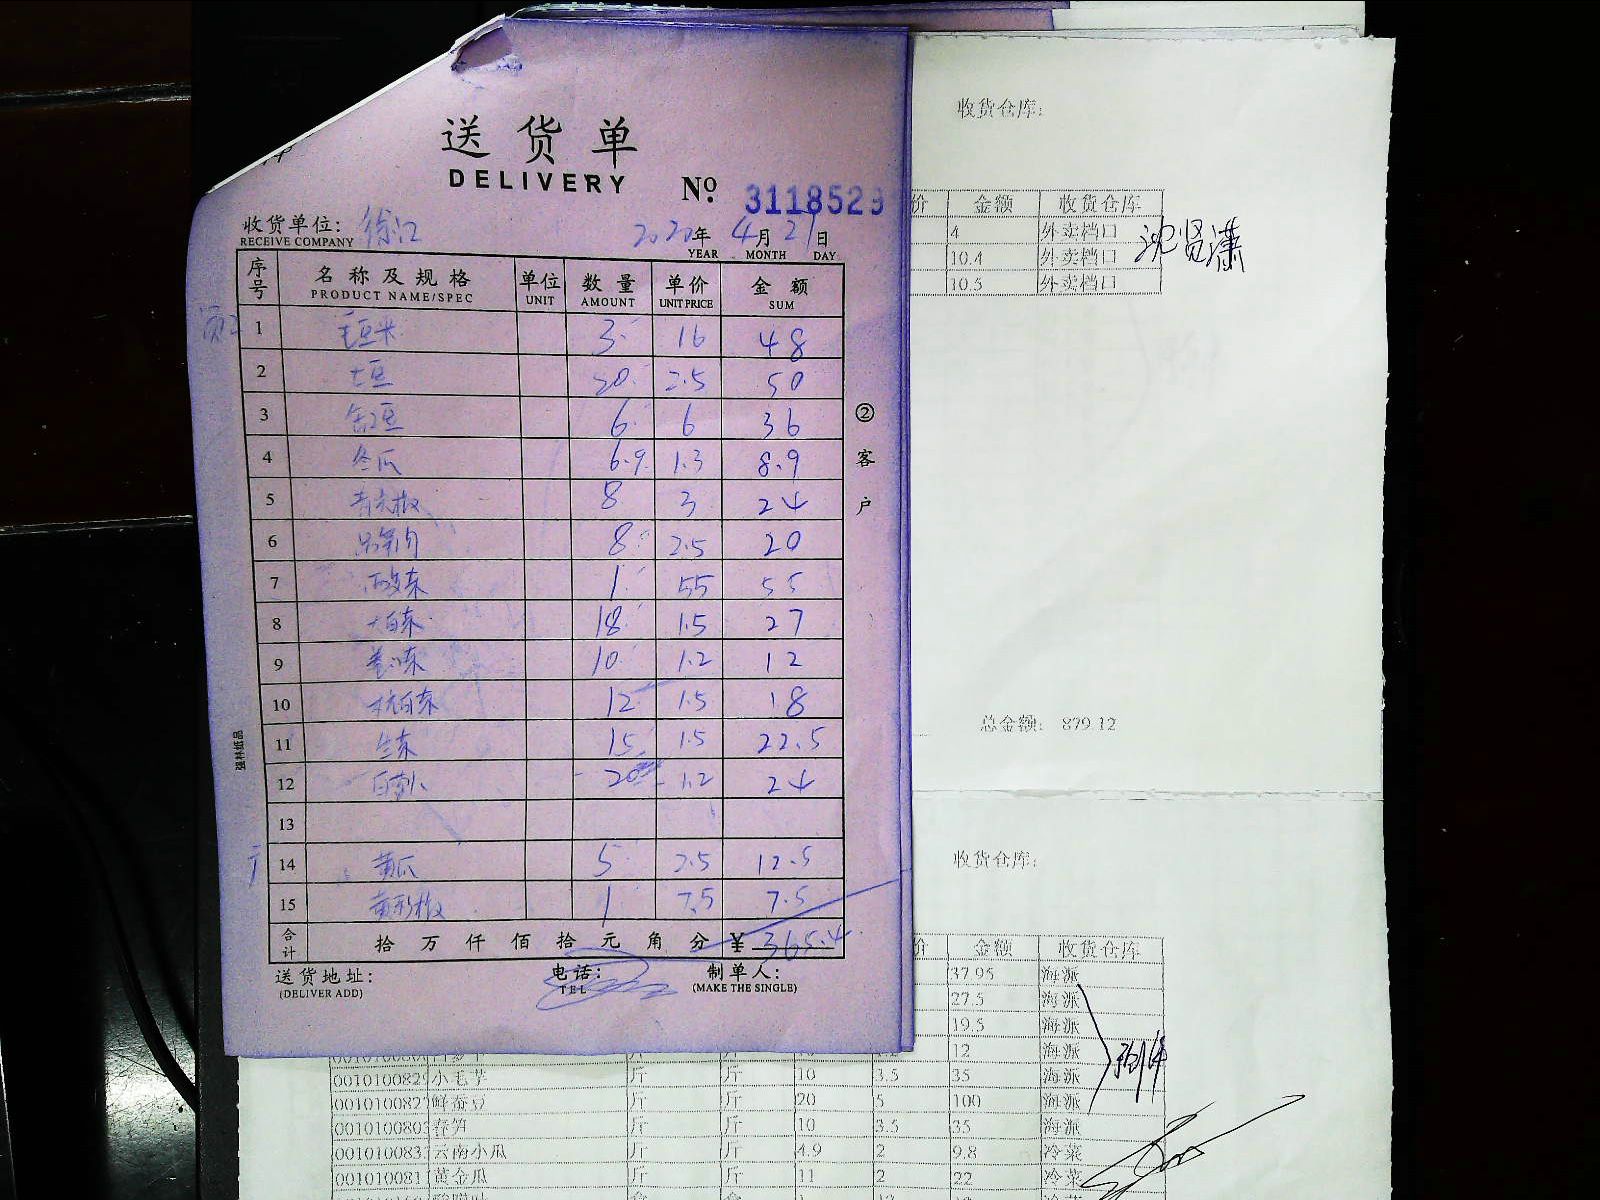 送货单
DELIVERY № 3118529
收货单位: 徐汇 2020年4月21日
RECEIVE COMPANY YEAR MONTH DAY
序号 名称及规格 单位 数量 单价 金额
PRODUCT NAME/SPEC UNIT AMOUNT UNIT PRICE SUM
1 毛豆米 3 16 48
2 土豆 20 2.5 50
3 缸豆 6 6 36
4 冬瓜 6.9 1.3 8.9
5 青尖椒 8 3 24
6 8 2.5 20
7 1 55 55
8 大白菜 18 1.5 27
9 卷心菜 10 1.2 12
10 杭白菜 12 1.5 18
11 生菜 15 1.5 22.5
12 白萝卜 20 1.2 24
13
14 黄瓜 5 2.5 12.5
15 黄彩椒 1 7.5 7.5
合计 拾万仟佰拾元角分 ¥ 365.4
送货地址: 电话: 制单人:
(DELIVER ADD) TEL (MAKE THE SINGLE)
②客户
强林纸品
收货仓库:
价 金额 收货仓库
4 外卖档口
10.4 外卖档口
10.5 外卖档口
沈贤潇
总金额: 879.12
收货仓库:
价 金额 收货仓库
37.95 海派
27.5 海派
19.5 海派
12 海派
001010082 小毛芋 斤 斤 10 3.5 35 海派
001010082 鲜蚕豆 斤 斤 20 5 100 海派
001010080 春笋 斤 斤 10 3.5 35 海派
001010083 云南小瓜 斤 斤 4.9 2 9.8 冷菜
001010081 黄金瓜 斤 斤 11 2 22 冷菜